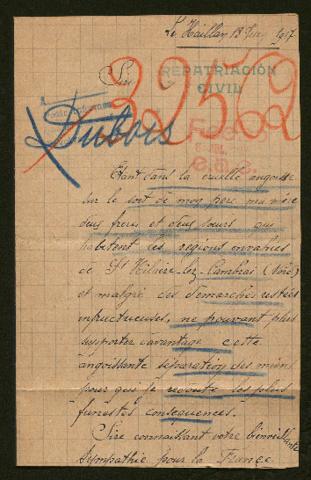 Le Haillan 13 1917.
Sire
REPATRIACIÓN
CIVIL
32502
Dubois
Etant dans la cruelle angoisse
sur le sort de mon père ma mère
deux frères et deux soeurs qui
habitent les régions envahies
de St Hilaire-lez-Cambrai (Nord)
et malgré des demarches restées
infructueuses, ne pouvant plus
supporter davantage cette
angoissante séparation des miens
pour qui je redoute les plus
funestes conséquences.
Sire connaissant votre bienveillante
Sympathie pour la France